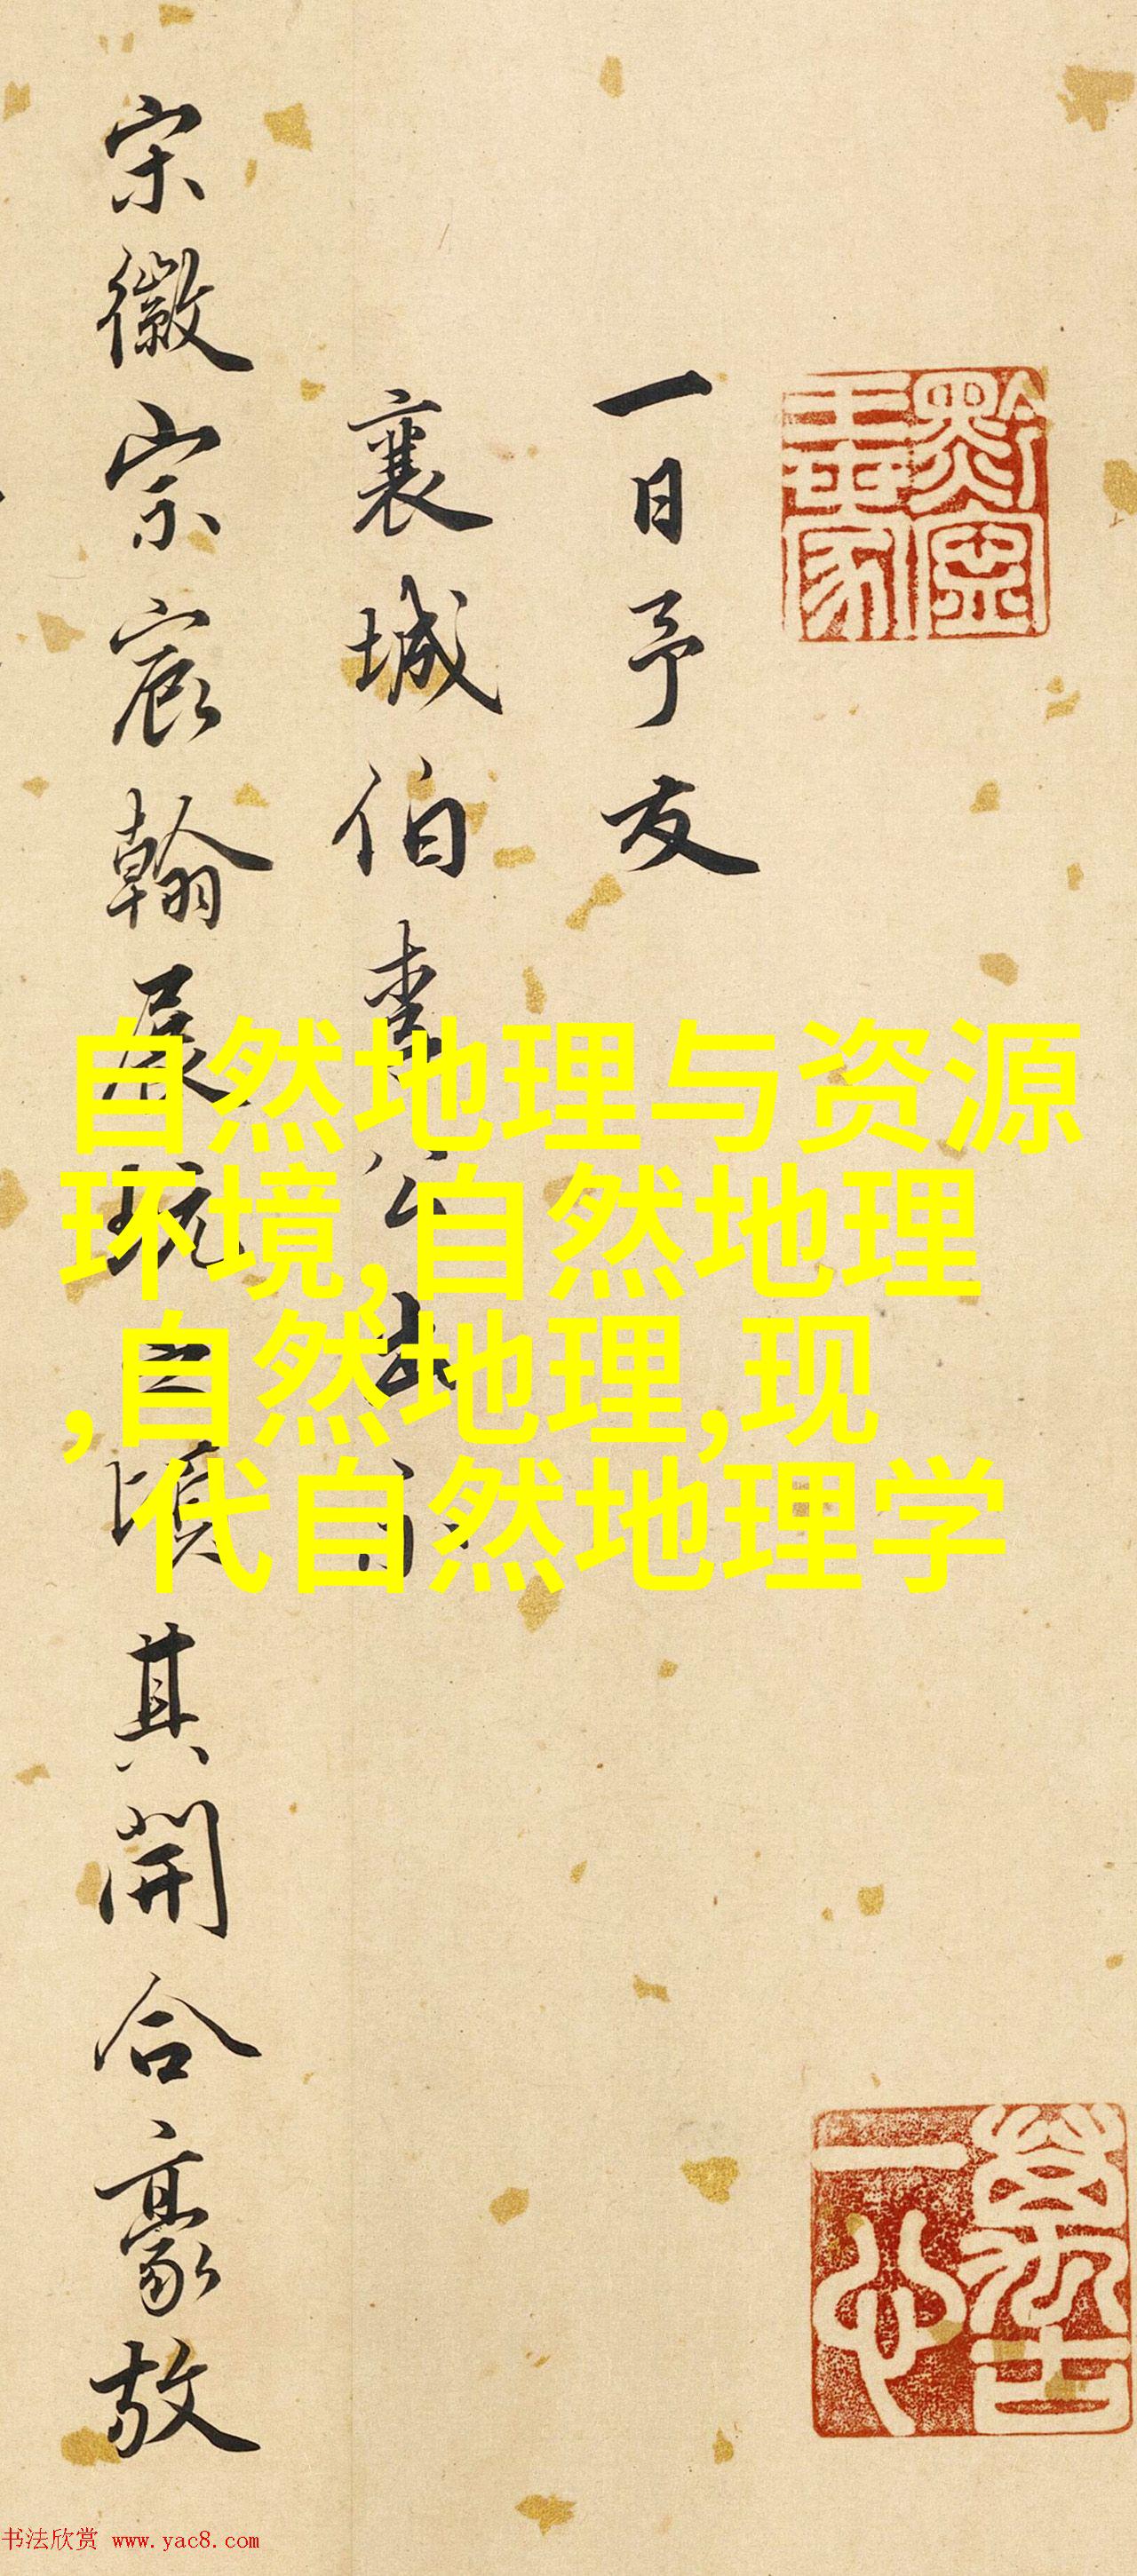 一日予友
襄城伯李公出
宋徽宗宸翰展玩之頃其開合豪放
自然地理与资源
环境,自然地理
,自然地理,现
代自然地理学
书法欣赏 www.yac8.com